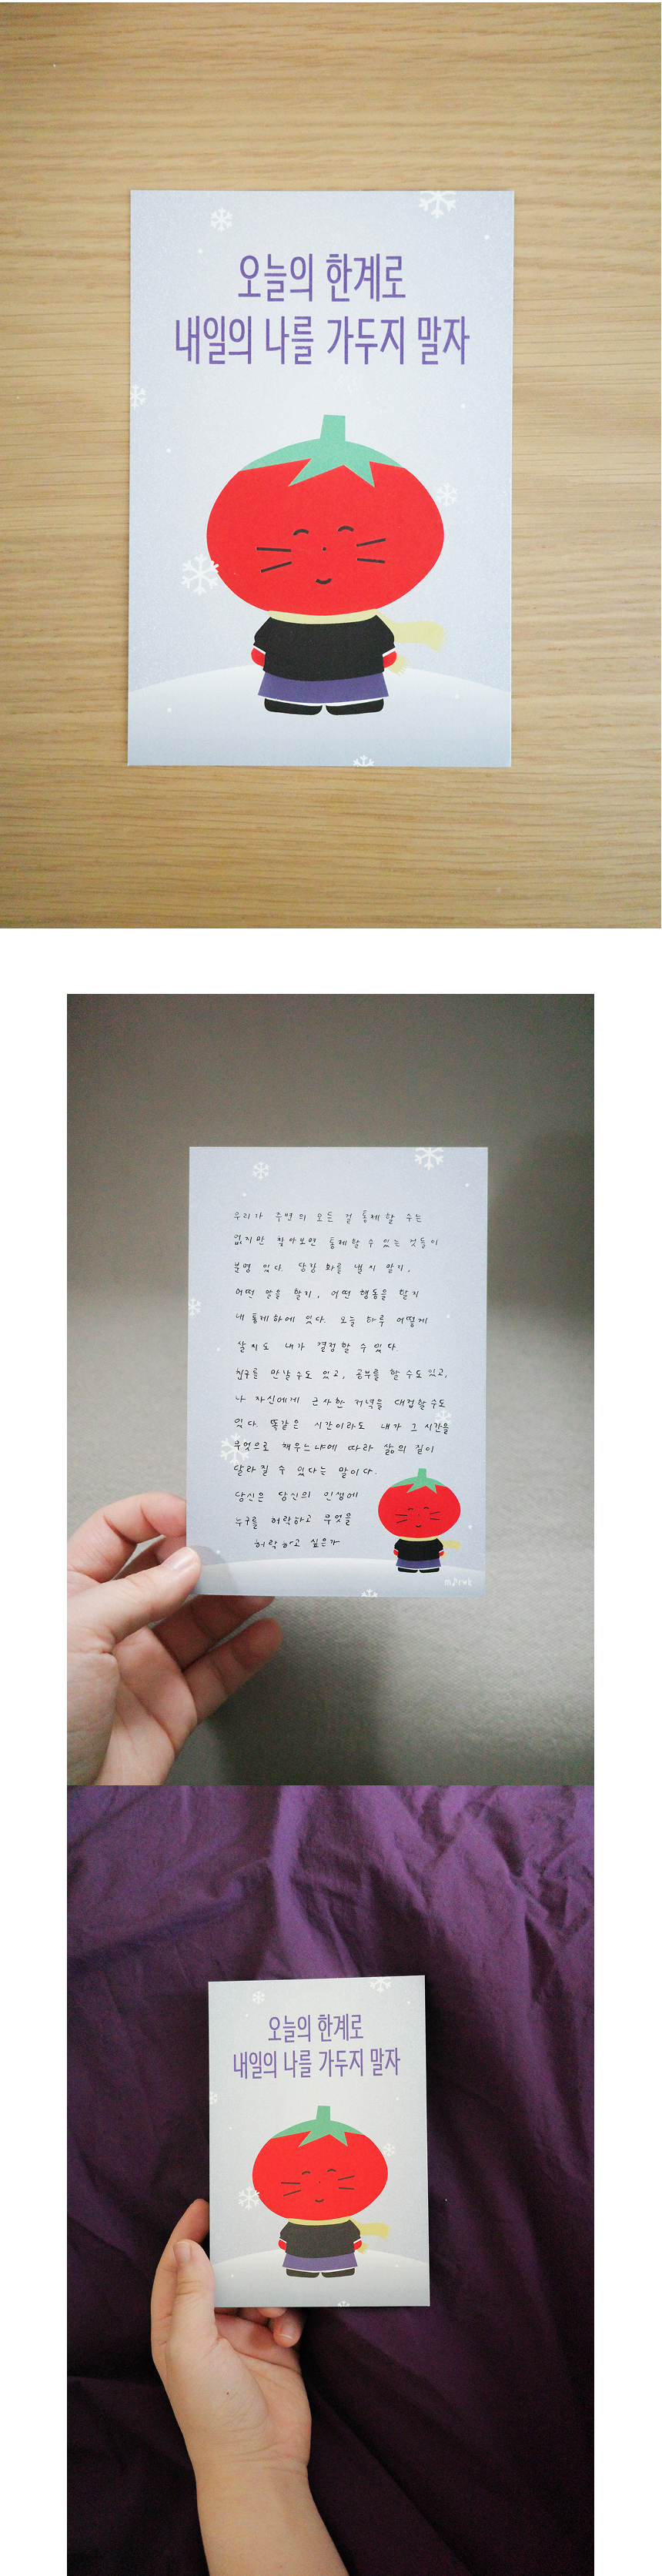 오늘의 한계로
내일의 나를 가두지 말자
우리가 주변의 모든 걸 통제할 수는
없지만 찾아보면 통제할 수 있는 것들이
분명 있다. 당장 화를 낼지 말지,
어떤 말을 할지, 어떤 행동을 할지
내 통제하에 있다. 오늘 하루 어떻게
살지도 내가 결정할 수 있다
친구를 만날 수도 있고, 공부를 할 수도 있고,
나 자신에게 근사한 저녁을 대접할 수도
있다. 똑같은 시간이라도 내가 그 시간을
무엇으로 채우느냐에 따라 삶의 질이
달라질 수 있다는 말이다.
당신은 당신의 인생에
누구를 허락하고 무엇을
허락하고 싶은가
오늘의 한계로
내일의 나를 가두지 말자